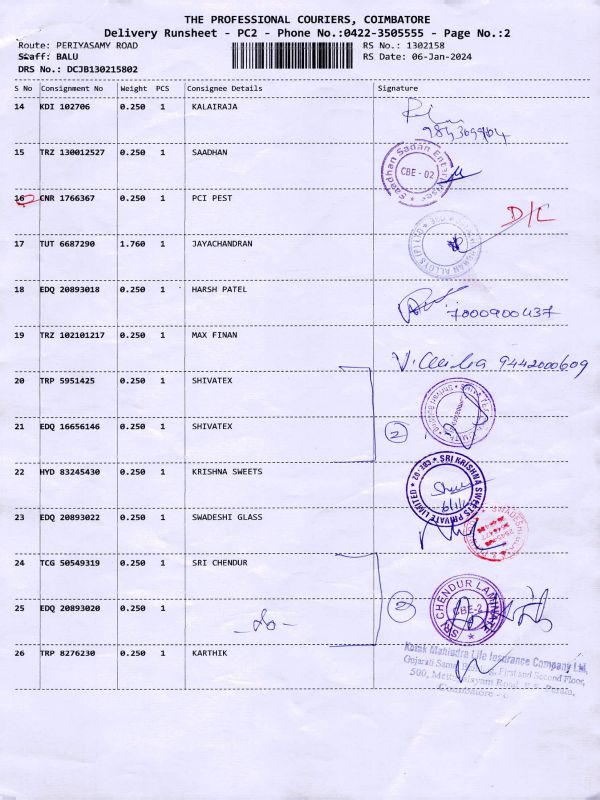 THE PROFESSIONAL COURIERS, COIMBATORE
Delivery Runsheet - PC2 - Phone No.:0422-3505555 - Page No.:2
Route: PERIYASAMY ROAD RS No.: 1302158
Staff: BALU RS Date: 06-Jan-2024
DRS No.: DCJB130215802
S No Consignment No Weight PCS Consignee Details Signature
14 KDI 102706 0.250 1 KALAIRAJA
15 TRZ 130012527 0.250 1 SAADHAN
Saadhan Sadan Enterprises
CBE - 02
16 CNR 1766367 0.250 1 PCI PEST
D/C
17 TUT 6687290 1.760 1 JAYACHANDRAN
ALLOYS (P) LTD
18 EDQ 20893018 0.250 1 HARSH PATEL
7000900437
19 TRZ 102101217 0.250 1 MAX FINAN
9442000609
20 TRP 5951425 0.250 1 SHIVATEX
21 EDQ 16656146 0.250 1 SHIVATEX
2
22 HYD 83245430 0.250 1 KRISHNA SWEETS
SRI KRISHNA SWEETS PRIVATE LIMITED
23 EDQ 20893022 0.250 1 SWADESHI GLASS
24 TCG 50549319 0.250 1 SRI CHENDUR
25 EDQ 20893020 0.250 1 -do-
2
SRI CHENDUR LAMINATE
CBE-2
26 TRP 8276230 0.250 1 KARTHIK
Kotak Mahindra Life Insurance Company Ltd,
Gujarati Samaj Building, First and Second Floor,
500, Mettupalayam Road, R.S. Puram,
Coimbatore -